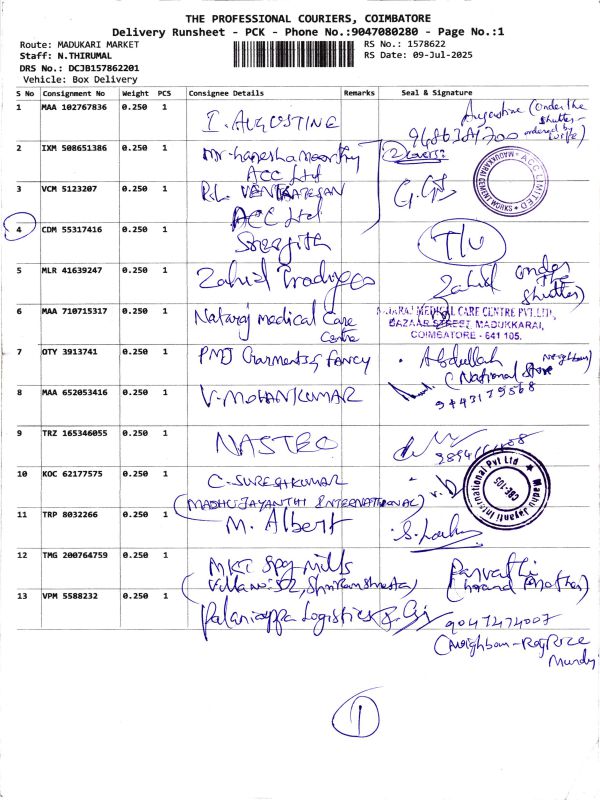 THE PROFESSIONAL COURIERS, COIMBATORE
Delivery Runsheet - PCK - Phone No.:9047080280 - Page No.:1
Route: MADUKARI MARKET RS No.: 1578622
Staff: N.THIRUMAL RS Date: 09-Jul-2025
DRS No.: DCJB157862201
Vehicle: Box Delivery
S No Consignment No Weight PCS Consignee Details Remarks Seal & Signature
1 MAA 102767836 0.250 1 I. AUGUSTINE Augustine (Under the
shutter -
ordered by
wife)
2 IXM 508651386 0.250 1 Mr-hareshamoorthy 2 covers
ACC Ltd
ACC LIMITED
MADUKKARAI CEMENT WORKS
3 VCM 5123207 0.250 1 R.L VENKATESAN
ACC Ltd
4 CDM 55317416 0.250 1 Sreejith T/U
5 MLR 41639247 0.250 1 Zahid Zahid under
the
shutter)
6 MAA 710715317 0.250 1 Nataraj medical Care
Centre
MEDICAL CARE CENTRE PVT.LTD.,
BAZAAR STREET, MADUKKARAI,
COIMBATORE - 641 105.
7 OTY 3913741 0.250 1 PMJ Garments & FANCY Abdullah neighbour)
(National Store
9443179568
8 MAA 652053416 0.250 1 V-MOHANKUMAR
9 TRZ 165346055 0.250 1 NASTRO
10 KOC 62177575 0.250 1 C-SURESHKUMAR
(MADHUJAYANTHI INTERNATIONAL)
Madhu Jayanti International Pvt Ltd
CBE-105
11 TRP 8032266 0.250 1 M. Albert
12 TMG 200764759 0.250 1 MKT Spg Mills Parvathi
(Villa no:52, (Grand Mother)
13 VPM 5588232 0.250 1 Palaniappa Logistics 9047474007
(Neighbour-
Mundy
1